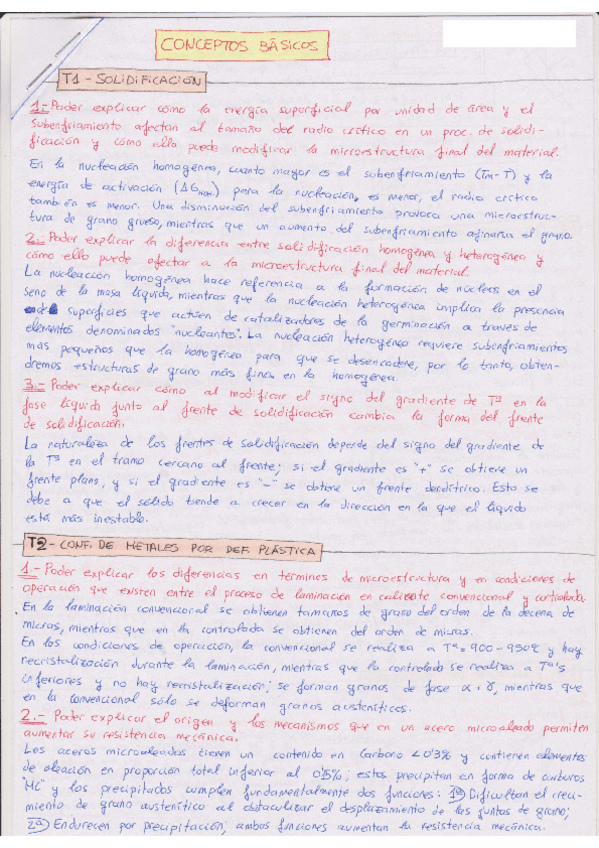 CONCEPTOS BÁSICOS
T1 - SOLIDIFICACIÓN
1.- Poder explicar cómo la energía superficial por unidad de área y el
subenfriamiento afectan al tamaño del radio crítico en un proc. de solidi-
ficación y cómo ello puede modificar la microestructura final del material.
En la nucleación homogénea, cuanto mayor es el subenfriamiento (Tm-T) y la
energía de activación (ΔG) para la nucleación, es menor, el radio crítico
también es menor. Una disminución del subenfriamiento provoca una microestruc-
tura de grano grueso, mientras que un aumento del subenfriamiento afinaría el grano.
2.- Poder explicar la diferencia entre solidificación homogénea y heterogénea y
cómo ello puede afectar a la microestructura final del material.
La nucleación homogénea hace referencia a la formación de núcleos en el
seno de la masa líquida, mientras que la nucleación heterogénea implica la presencia
de superficies que actúen de catalizadores de la germinación a través de
elementos denominados "nucleantes". La nucleación heterogénea requiere subenfriamientos
más pequeños que la homogénea para que se desencadene, por lo tanto, obten-
dremos estructuras de grano más finas en la homogénea.
3.- Poder explicar cómo al modificar el signo del gradiente de Tª en la
fase líquida junto al frente de solidificación cambia la forma del frente
de solidificación.
La naturaleza de los frentes de solidificación depende del signo del gradiente de
la Tª en el tramo cercano al frente; si el gradiente es "+" se obtiene un
frente plano, y si el gradiente es "-" se obtiene un frente dendrítico. Esto se
debe a que el sólido tiende a crecer en la dirección en la que el líquido
está más inestable.
T2 - CONF. DE METALES POR DEF. PLÁSTICA
1.- Poder explicar las diferencias en términos de microestructura y en condiciones de
operación que existen entre el proceso de laminación en caliente convencional y controlada.
En la laminación convencional se obtienen tamaños de grano del orden de la decena de
micras, mientras que en la controlada se obtienen del orden de micras.
En las condiciones de operación, la convencional se realiza a Tª = 900-950ºC y hay
recristalización durante la laminación, mientras que la controlada se realiza a Tª's
inferiores y no hay recristalización; se forman granos de fase α + γ, mientras que
en la convencional sólo se deforman granos austeníticos.
2.- Poder explicar el origen y los mecanismos que en un acero microaleado permiten
aumentar su resistencia mecánica.
Los aceros microaleados tienen un contenido en Carbono < 0'3% y contienen elementos
de aleación en proporción total inferior al 0'15%; estos precipitan en forma de carburos
"MC" y los precipitados cumplen fundamentalmente dos funciones: 1º) Dificultan el creci-
miento de grano austenítico al obstaculizar el desplazamiento de las juntas de grano;
2º) Endurecen por precipitación; ambas funciones aumentan la resistencia mecánica.